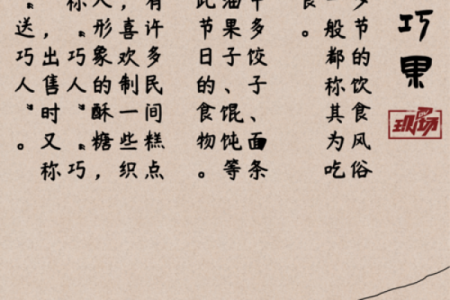 巧果
现场
节的饮食风俗
一般都称其为吃
食。
多饺子、面条
油果子、馄饨等
此节日的食物。
有许多民间糕点
，喜欢制一些织
人”形象的酥糖，
称“巧人”、“巧
”，出售时又称
“送巧人”。